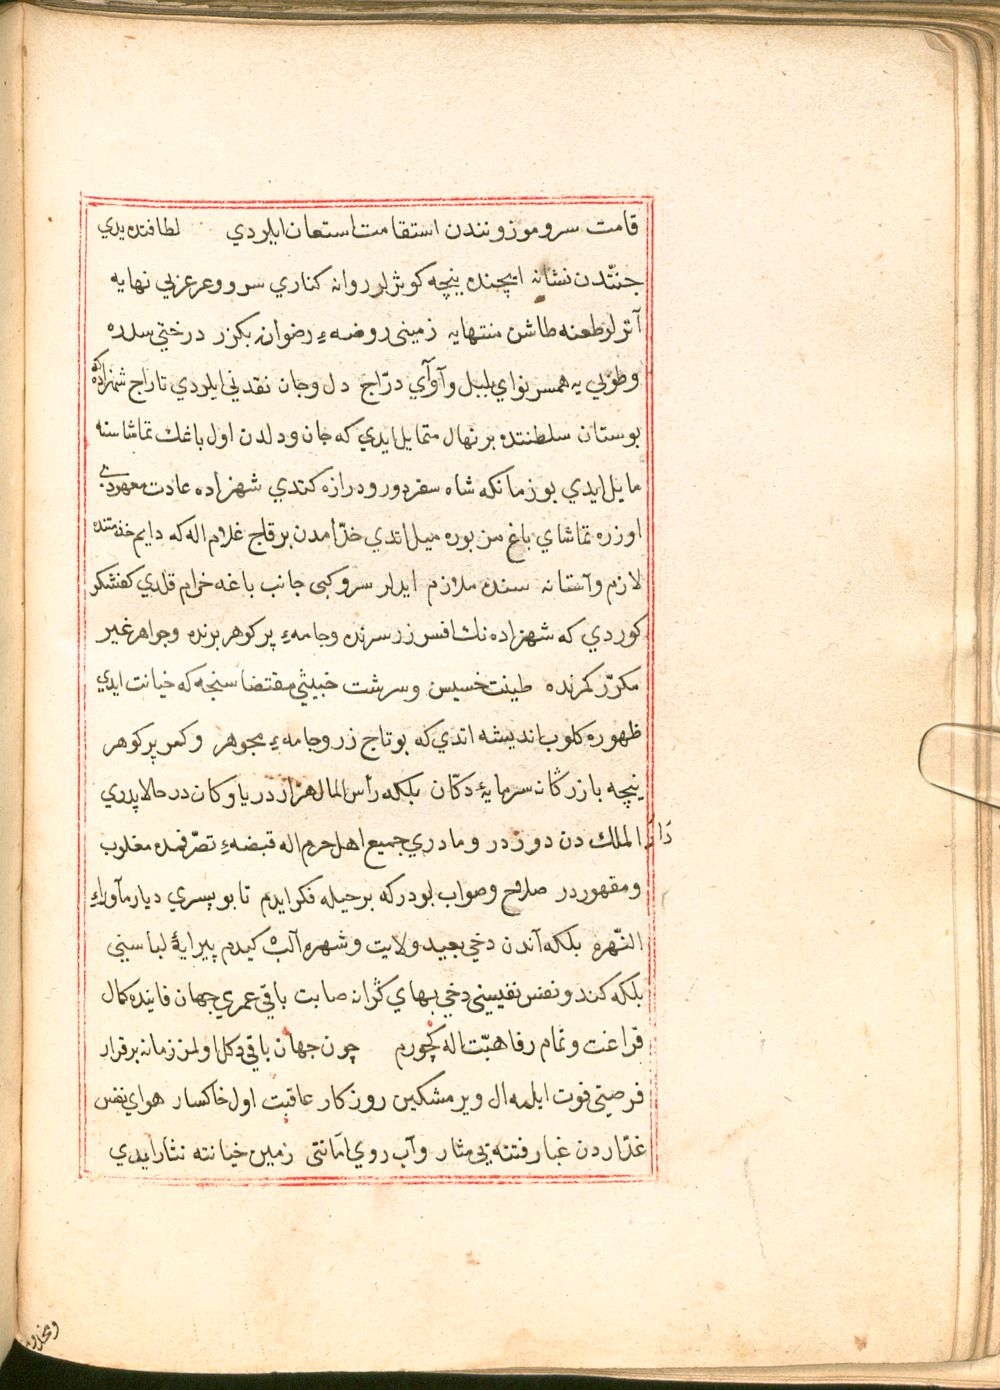 قامت سرو موزونندن استقامت استعان ايلردي لطافتده يدي
جنتّدن نشانه ايچنده نيچه كوثرلر روانه كناري سرو وعرعردي نهايه
آثرلر طعنه طاشن منتهايه زميني روضهء رضوانه بكزر درختي سدره
وطوبي يه همسر نواي بلبل وآواي درّاج دل وجان نقدني ايلردي تاراج شهزاده كه
بوستان سلطنتده بر نهال متمايل ايدي كه جان ودلدن اول باغك تماشاسنه
مايل ايدي بو زمانكه شاه سفر دور ودرازه كتدي شهزاده عادت معهودي
اوزره تماشاي باغ مزبوره ميل اتدي خدّامدن بر قاج غلام اله كه دايم خدمتنده
لازم وآستانه سنده ملازم ايدلر سرو كبي جانب باغه خرام قلدي كفشكر
كوردي كه شهزاده نك افسر زر سرنده وجامهء پر كوهر برنده وجواهر غير
مكرّر كمرنده طينت خسيس وسرشت خبيثي مقتضاسنجه كه خيانت ايدي
ظهوره كلوب انديشه اتدي كه بو تاج زر وجامهء مجوهر وكمر پر كوهر
نيچه بازركانه سرمايهٔ دكّان بلكه رأس المال هزار دريا وكان در حالا پدري
دار الملك دن دوزدر ومادري جميع اهل حرم اله قبضهء تصرّفمده مغلوب
ومقهور در صلاح وصواب بودر كه بر حيله فكر ايدم تا بو پسري ديار مآوراء
النّهره بلكه آندن دخي بعيد ولايت وشهره آلب كيدم پيرايهٔ لباسني
بلكه كندو نفس نفيسني دخي بهاي كرانه صاتب باقي عمري جهان فانيده كال
فراغت وتمام رفاهيّت اله كچورم چون جهان باقي دكل اولمز زمانه برقرار
فرصتي فوت ايلمه ال وير مشكين روزكار عاقبت اول خاكسار هواي نفس
غدّاردن غبار فتنه يي مثار وآب روي امانتي زمين خيانته نثار ايدي